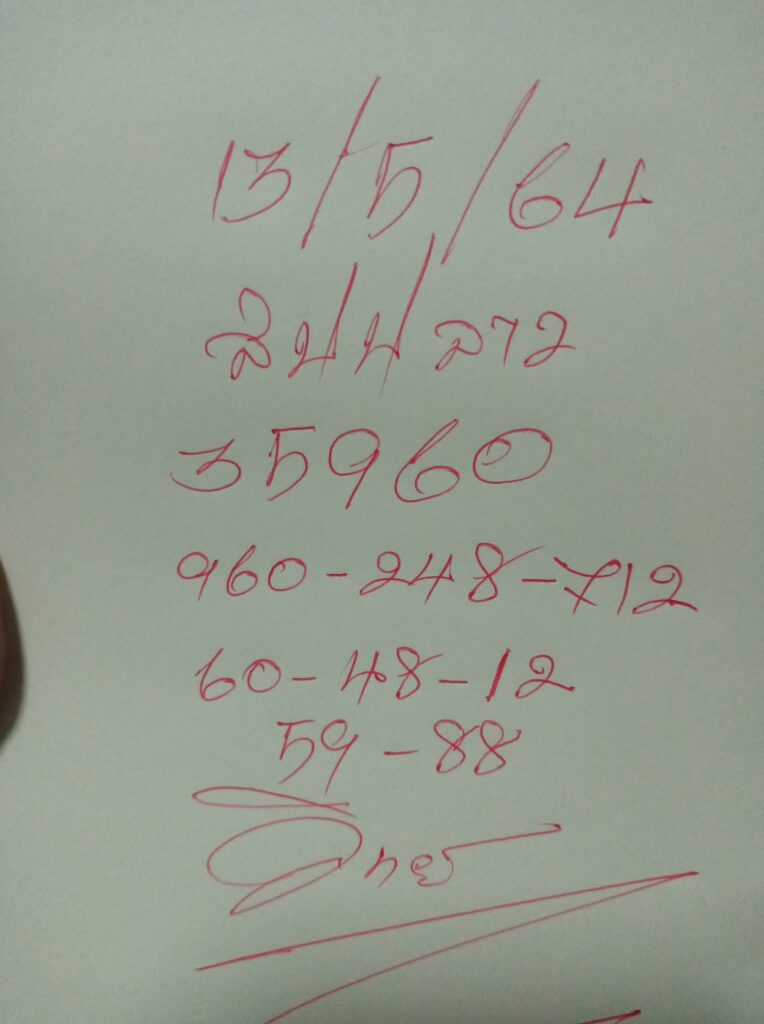 13/5/64
สปป ลาว
35960
960-248-712
60-48-12
59-88